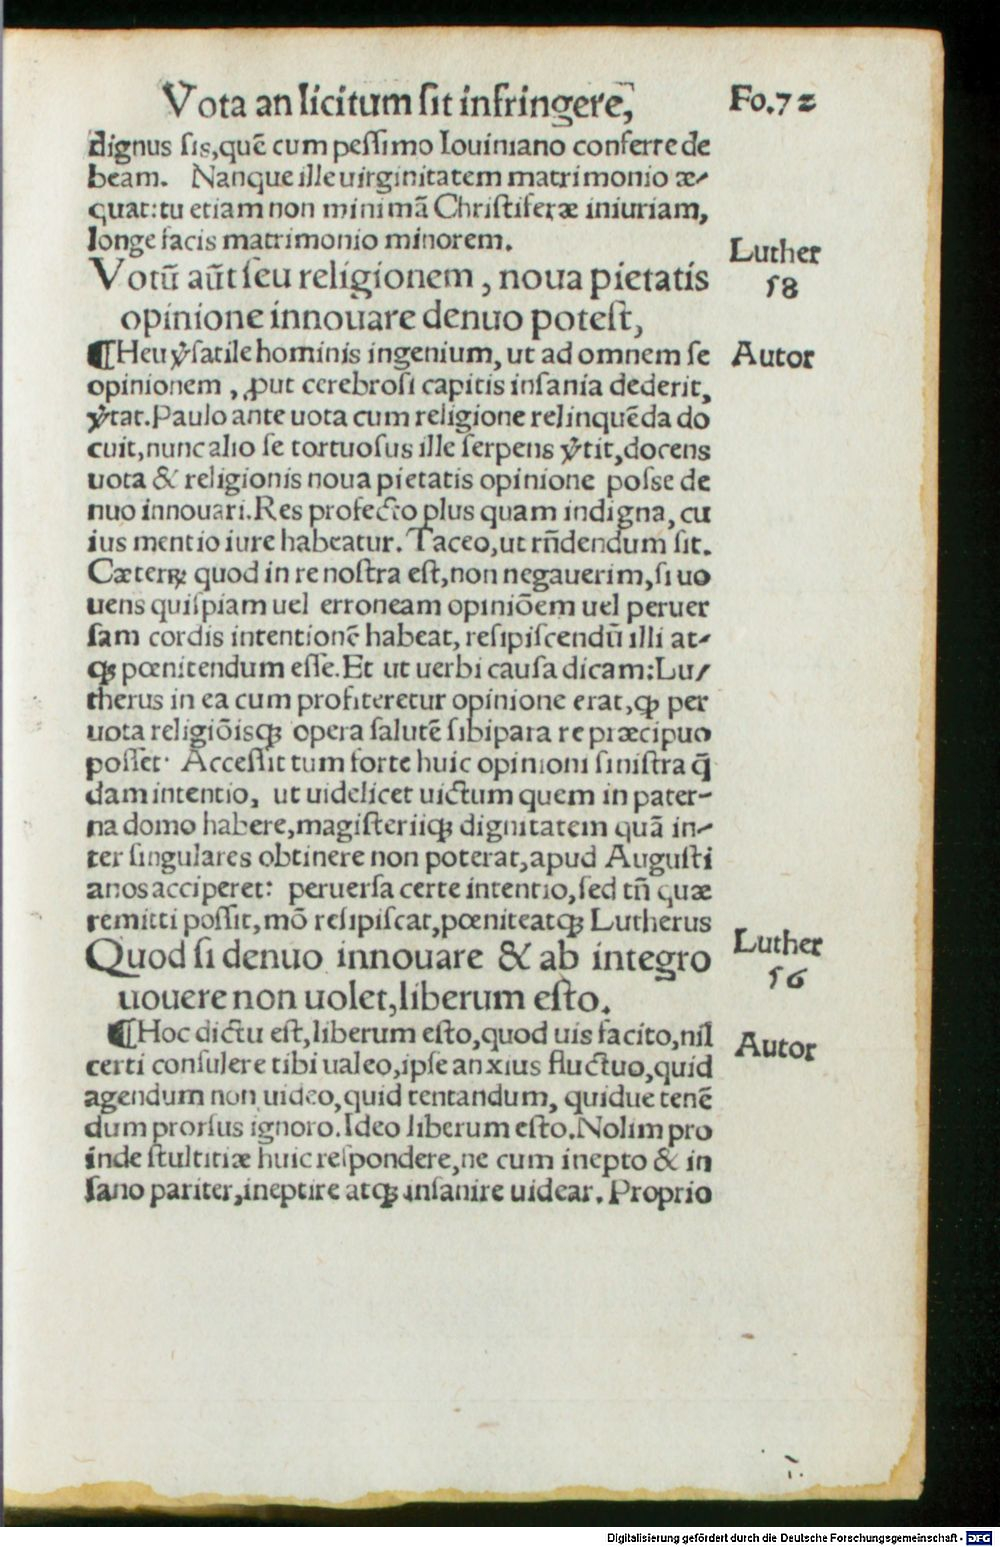 Vota an licitum sit infringere, Fo.72
dignus sis,quē cum pessimo Iouiniano conferre de
beam. Nanque ille uirginitatem matrimonio æ-
quat:tu etiam non minimā Christiferæ iniuriam,
longe facis matrimonio minorem.
Luther
58
Votū aūt seu religionem, noua pietatis
opinione innouare denuo potest,
Autor
¶Heu ꝟsatile hominis ingenium, ut ad omnem se
opinionem, ꝓut cerebrosi capitis insania dederit,
ꝟtat.Paulo ante uota cum religione relinquēda do
cuit,nunc alio se tortuosus ille serpens ꝟtit,docens
uota & religionis noua pietatis opinione posse de
nuo innouari.Res profecto plus quam indigna, cu
ius mentio iure habeatur. Taceo,ut rñdendum sit.
Cæterꝝ quod in re nostra est,non negauerim,si uo
uens quispiam uel erroneam opiniōem uel peruer
sam cordis intentionē habeat, resipiscendū illi at-
qꝫ pœnitendum esse.Et ut uerbi causa dicam:Lu/
therus in ea cum profiteretur opinione erat,ꝙ per
uota religiōisqꝫ opera salutē sibi para re præcipuo
posset· Accessit tum forte huic opinioni sinistra q̄
dam intentio, ut uidelicet uictum quem in pater-
na domo habere,magisteriiqꝫ dignitatem quā in-
ter singulares obtinere non poterat,apud Augusti
anos acciperet: peruersa certe intentio,sed tñ quæ
remitti possit,mō resipiscat,pœniteatqꝫ Lutherus
Luther
56
Quod si denuo innouare & ab integro
uouere non uolet,liberum esto.
Autor
¶Hoc dictu est,liberum esto,quod uis facito,nil
certi consulere tibi ualeo,ipse anxius fluctuo,quid
agendum non uideo,quid tentandum, quidue tenē
dum prorsus ignoro.Ideo liberum esto.Nolim pro
inde stultitiæ huic respondere,ne cum inepto & in
sano pariter,ineptire atqꝫ insanire uidear. Proprio
Digitalisierung gefördert durch die Deutsche Forschungsgemeinschaft - DFG